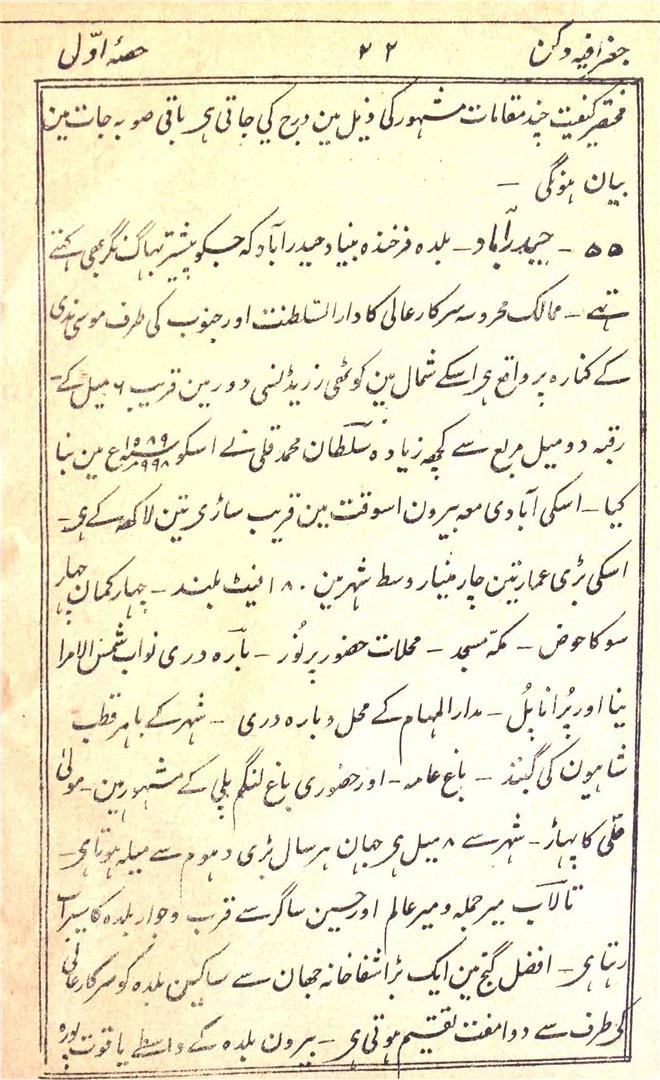 جغرافیہ دکن ۲۲ حصۂ اوّل
مختصر کیفیت چند مقامات مشہور کی ذیل مین درج کی جاتی ہی باقی صوبہ جات مین
بیان ہونگی —
۵۵ - حیدرآباد - بلدہ فرخندہ بنیاد حیدرآباد کہ جسکو پیشتر بھاگ نگر بھی کہتے
تہے - ممالک محروسہ سرکار عالی کا دارالسلطنت اور جنوب کی طرف موسی ندی
کے کنارہ پر واقع ہی اسکے شمال مین کوٹھی رزیڈنسی دور مین قریب ۶ میل کے -
رقبہ دو میل مربع سے کچھ زیادہ سلطان محمد قلی نے اسکو ۱۵۸۹ ۹۹۸ ع مین بنا
کیا - اسکی آبادی معہ بیرون اسوقت مین قریب ساڑی تین لاکھ کے ہی -
اسکی بڑی عمارتین چار مینار وسط شہر مین ۱۸۰ فیٹ بلند - چہار کمان چہار
سو کا حوض - مکہ مسجد - محلات حضور پرنور - بارہ دری نواب شمس الامرا
نیا اور پُرانا پُل - مدارالمہام کے محل و بارہ دری - شہر کے باہر قطب
شاہیون کی گنبذ - باغ عامہ - اور حضوری باغ لنگم پلی کے مشہور مین - مولیٰ
علی کا پہاڑ - شہر سے ۸ میل ہی جہان ہر سال بڑی دہوم سے میلہ ہوتا ہی -
تالاب میر جملہ و میر عالم اور حسین ساگر سے قرب و جوار بلدہ کا سیراب
رہتا ہی - افضل گنج مین ایک بڑا شفاخانہ جہان سے ساکنین بلدہ کو سرکار عالی
کی طرف سے دوا مفت تقسیم ہوتی ہی - بیرون بلدہ کے واسطے یاقوت پورہ